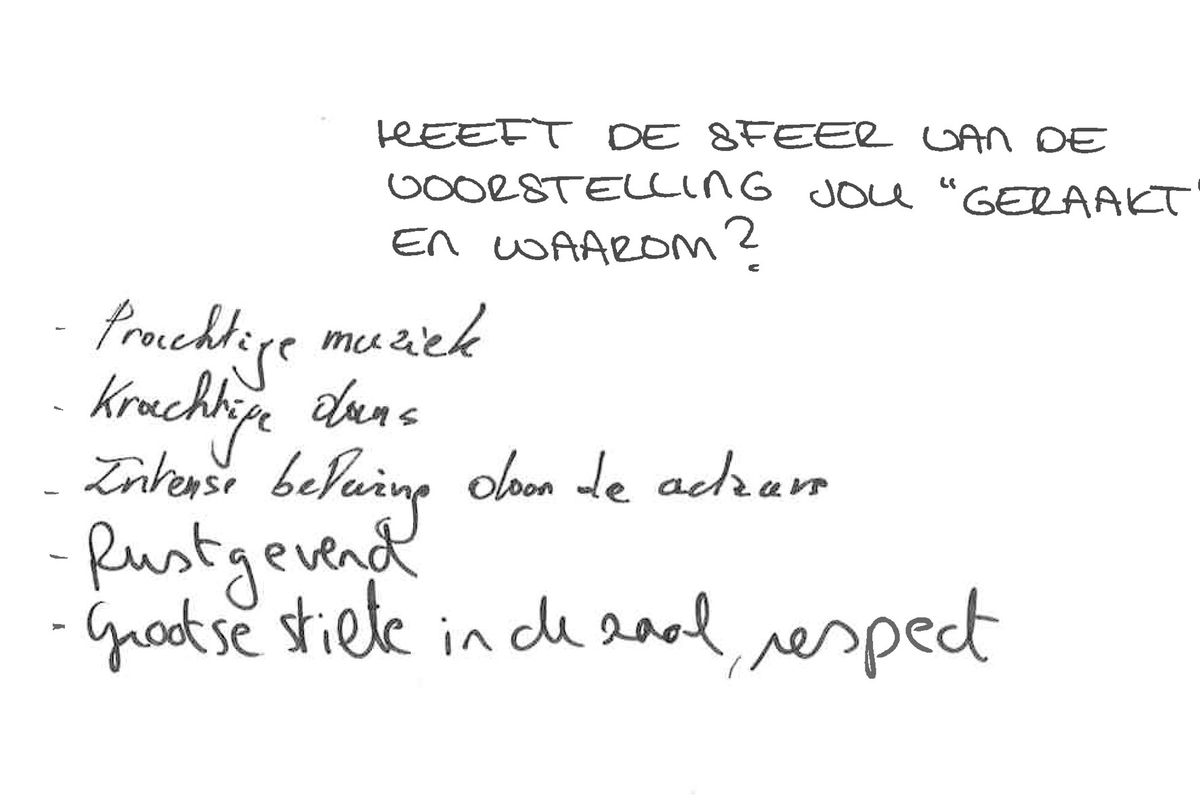 HEEFT DE SFEER VAN DE
VOORSTELLING JOU "GERAAKT"
EN WAAROM?
- Prachtige muziek
- Krachtige dans
- Intense beleving door de acteurs
- Rustgevend
- Grootse stilte in de zaal, respect